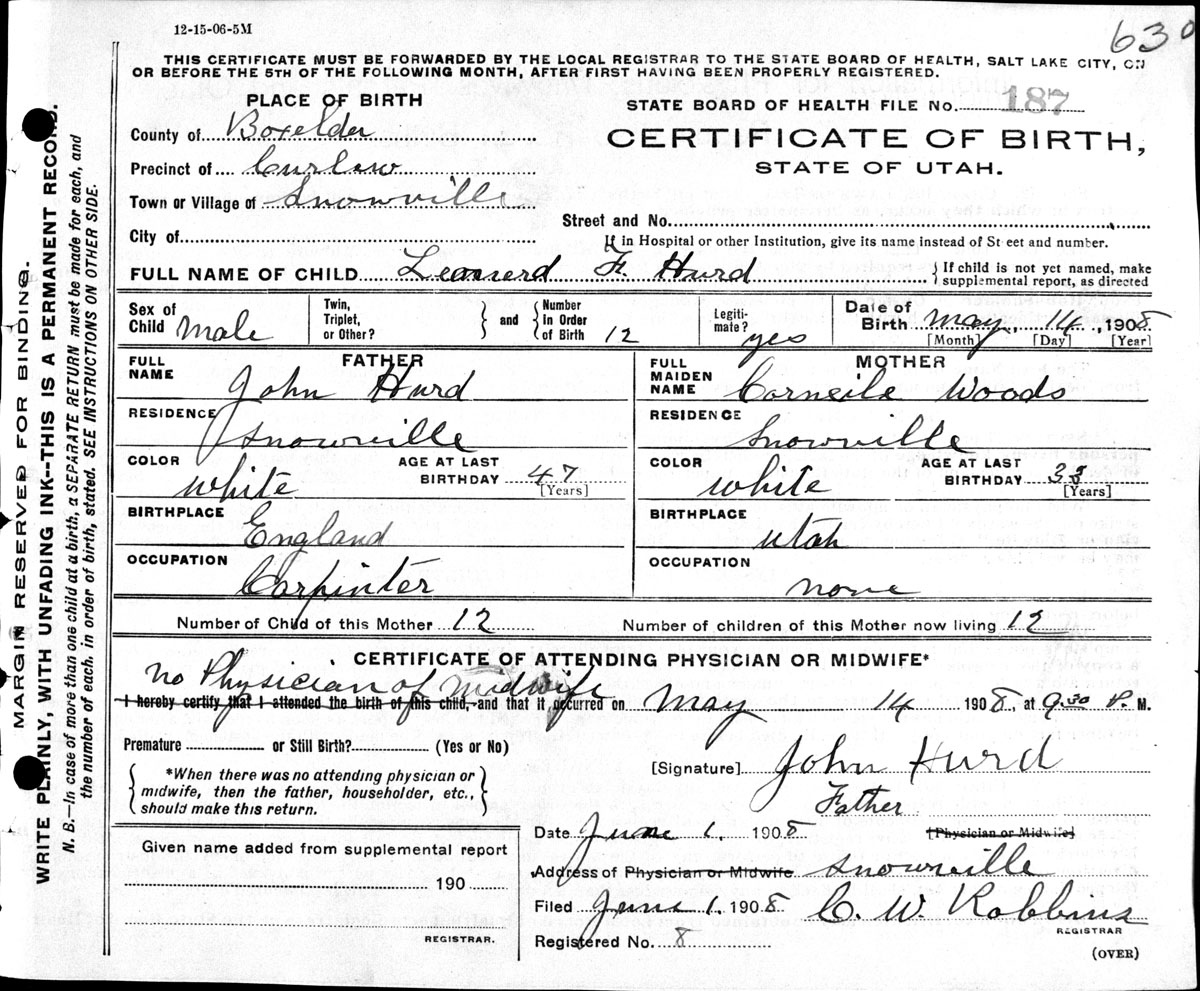 12-15-06-5M
630
THIS CERTIFICATE MUST BE FORWARDED BY THE LOCAL REGISTRAR TO THE STATE BOARD OF HEALTH, SALT LAKE CITY, ON
OR BEFORE THE 5TH OF THE FOLLOWING MONTH, AFTER FIRST HAVING BEEN PROPERLY REGISTERED.
PLACE OF BIRTH
STATE BOARD OF HEALTH FILE No. 187
County of Boxelder
CERTIFICATE OF BIRTH,
STATE OF UTAH.
Precinct of Curlew
Town or Village of Snowville
Street and No.
City of
If in Hospital or other Institution, give its name instead of St eet and number.
FULL NAME OF CHILD Leonerd F. Hurd
If child is not yet named, make
supplemental report, as directed
Sex of Child Male
Twin, Triplet, or Other?
and
Number In Order of Birth 12
Legiti- mate? yes
Date of Birth May, 14, 1908
[Month] [Day] [Year]
FATHER
FULL NAME John Hurd
RESIDENCE Snowville
COLOR White
AGE AT LAST BIRTHDAY 47
[Years]
BIRTHPLACE England
OCCUPATION Carpinter
MOTHER
FULL MAIDEN NAME Corneile Woods
RESIDENCE Snowville
COLOR White
AGE AT LAST BIRTHDAY
[Years]
BIRTHPLACE Utah
OCCUPATION none
Number of Child of this Mother 12
Number of children of this Mother now living 12
CERTIFICATE OF ATTENDING PHYSICIAN OR MIDWIFE*
no Physician of Midwife
I hereby certify that I attended the birth of this child, and that it occurred on May 14 1908, at 9.30 P. M.
Premature or Still Birth? (Yes or No)
[Signature] John Hurd
Father
*When there was no attending physician or
midwife, then the father, householder, etc.,
should make this return.
Date June 1, 1908
[Physician or Midwife]
Given name added from supplemental report
190
REGISTRAR.
Address of Physician or Midwife Snowville
Filed June 1, 1908 C. W. Robbins
REGISTRAR
Registered No. 8
(OVER)
MARGIN RESERVED FOR BINDING.
WRITE PLAINLY, WITH UNFADING INK--THIS IS A PERMANENT RECORD.
N. B.—In case of more than one child at a birth, a SEPARATE RETURN must be made for each, and
the number of each, in order of birth, stated. SEE INSTRUCTIONS ON OTHER SIDE.